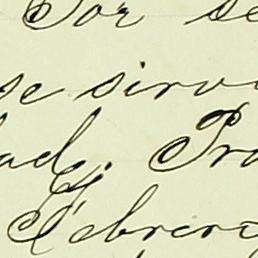 Por se
se sirva
dad. Pro
Febrero